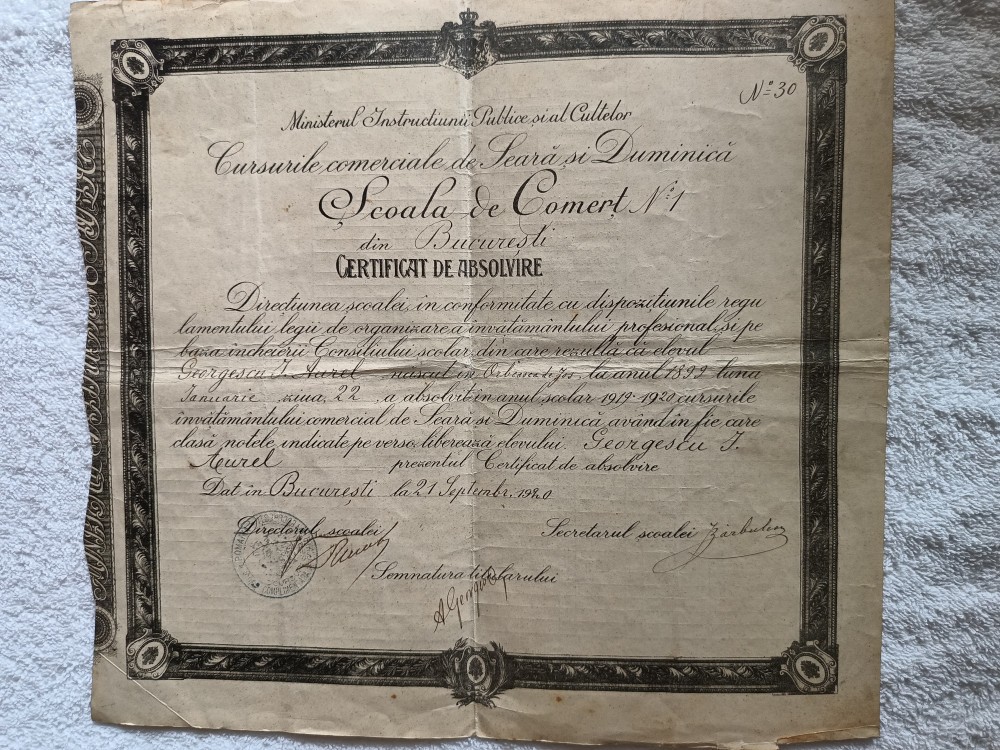 Nº 30
Ministerul Instructiunii Publice și al Cultelor
Cursurile comerciale de Seară și Duminică
Școala de Comerț Nº 1
din București
CERTIFICAT DE ABSOLVIRE
Directiunea școalei, in conformitate cu dispozițiunile regu
lamentului legii de organizare a invătământului profesional, și pe
baza încheierii Consiliului scolar, din care rezultă că elevul
Georgescu I. Aurel născut in de Jos, la anul 1899 luna
Ianuarie ziua 22, a absolvit in anul scolar 1919-1920 cursurile
invătământului comercial de Seară si Duminică având in fie care
clasă notele indicate pe verso, liberează elevului Georgescu I.
Aurel prezentul Certificat de absolvire
Dat in București la 21 Septembr. 1920
Directorul școalei
Secretarul școalei
Semnatura titularului